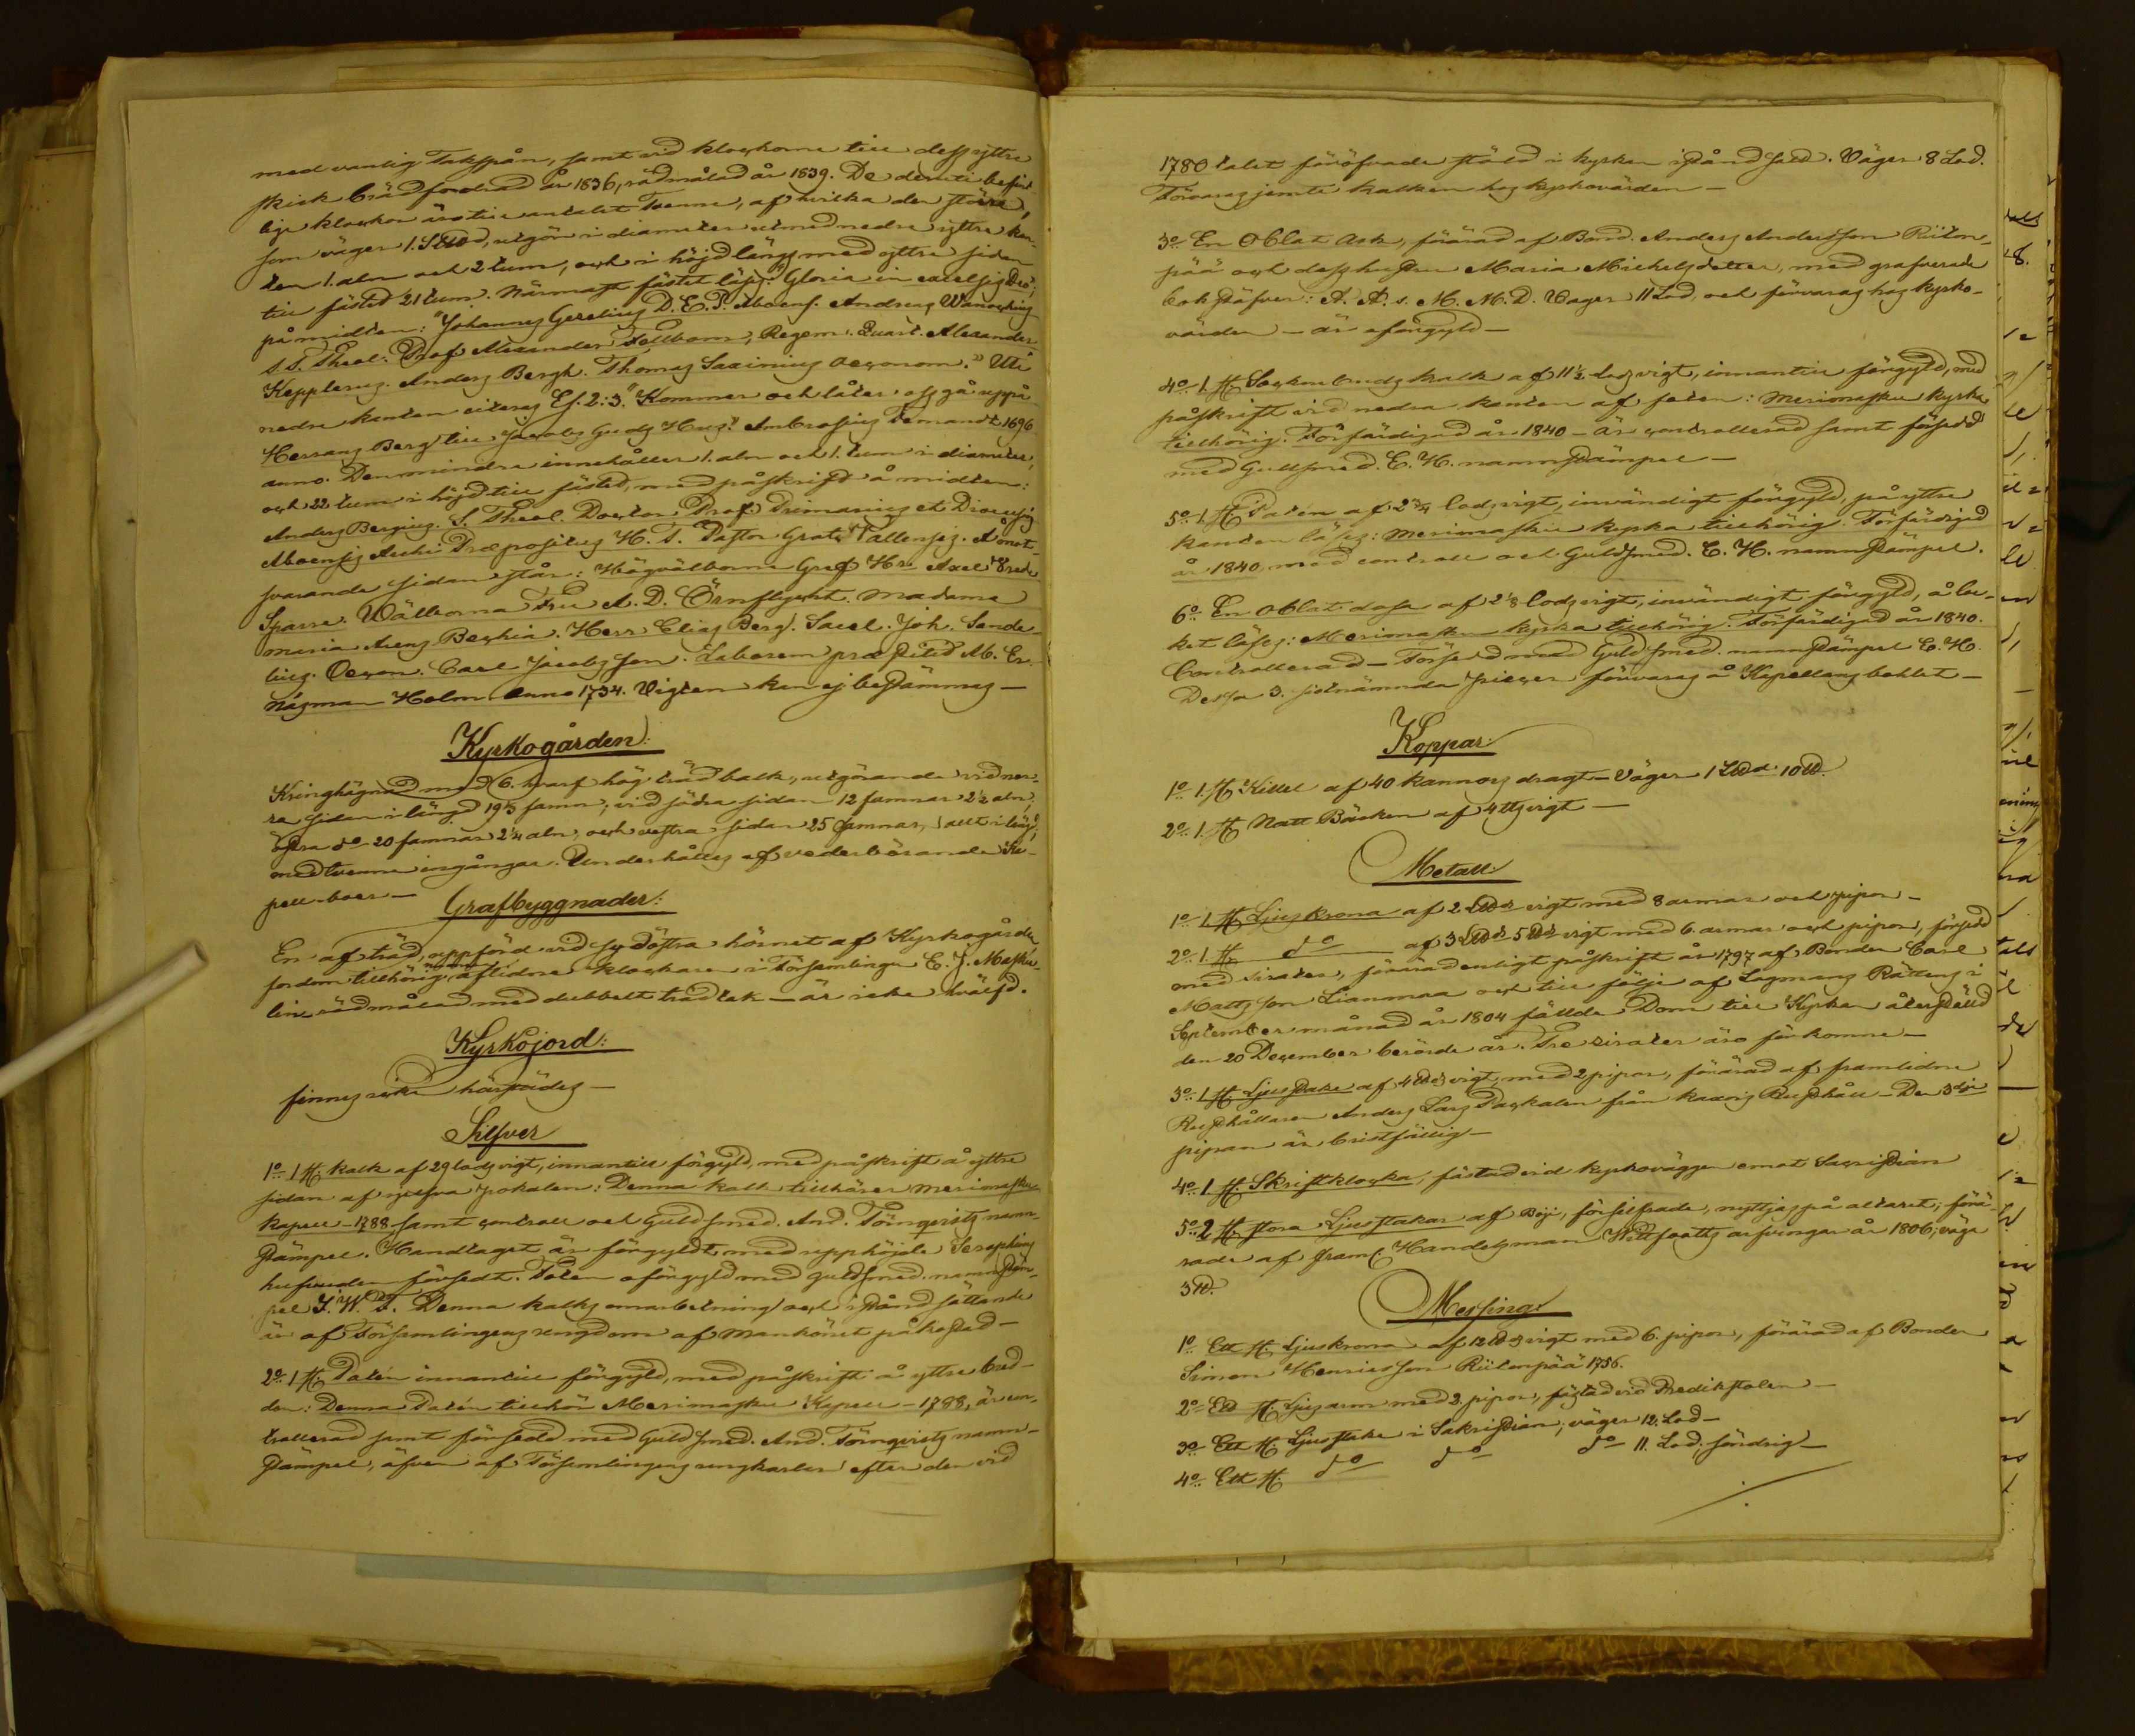 med vanlig Takspån, samt vid klockorne till dess yttre
skick brädfodrad år 1836, rödmålad år 1839. De deruti befint-
lige klockor äro till antalet Tvenne, af hvilka den större,
som väger 1. S℔d, utgör i diameter utmed nedre yttre kan-
ten 1. aln och 2 tum, och i höjd längs med yttre sidan
till fästet 21 tum. Närmast fästet läses: "Gloria in excelsis Deo";
på midten: "Johannes Gezelius D. E. P. Aboens. Andreas Wanochius
S. S. Theol. Prof. Alexander Fellbom, Regem. Quart. Alexander
Kepplerus. Anders Bergh. Thomas Saxinius Oeconom." Uti
nedre kanten citeras Es. 2:3. "Kommer och låter oss gå uppå
Herrans Berg till Jacobs Guds Hus". Ambrosius Femandt 1696
anno. Den mindre innehåller 1. aln och 1. tum i diameter,
och 22 tum i höjd till fästet, med påskrift å midten:
Anders Bergius. S. Theol. Doctor. Prof. Primarius et Dioecesis
Aboensis Archi Præpositus H. T. Pastor Grat. Tallensis. Å mot-
svarande sidan står: Högvälborne Gref Hr Axel Vrede
Sparre. Wälborna Fru A. D. Örnflycht. Madame
Maria Beckia. Herr Elias Berg. Sacel. Joh. Sande-
lius. Oecon. Carl Jacobsson. Laborem præstitit Ab. Er.
Någman Holm. anno 1734. Vigten kan ej bestämmas —
Kyrkogården:
Kringhägnad med 6. hvarf hög trädbalk, utgörande vid nor-
ra sidan i längd 19⅓ famn; vid södra sidan 12 famnar 2½ aln;
östra do 20 famnar 2¼ aln, och vestra sidan 25 famnar, allt i längd;
med tvenne ingångar. Underhålles af vederbörande Ka-
pell-boer —
Grafbyggnader:
En af träd, uppförd vid sydöstra hörnet af Kyrkogården,
fordom tillhörig aflidne klockaren i Församlingen E. J. Masku-
lin, rödmålad med dubbelt trädtak — är icke hvälfd.
Kyrkojord:
finnes icke härstädes —
Silfver
1o 1 st. kalk af 29 lods vigt, innantill förgyld, med påskrift å yttre
sidan af sjelfva pokalen: Denna kalk tillhörer Merimasku
kapell — 1788 samt controll och Guldsmed. And. Törnqvists namn-
stämpel. Handtaget är förgyldt med upphöjde Seraphims
hufvuden försedt. Foten oförgyld med guldsmed. namnstäm-
pel J. W. T. Denna kalks omarbetning och iståndsättande
är af Församlingens ungdom af Mankönet påkostad —
2o 1 st. Patén innantill förgyld, med påskrift å yttre bräd-
den: Denna Patén tillhör Merimasku Kapell — 1788, är con-
trollerad samt försedd med Guldsmed. And. Törnqvists namn-
stämpel, äfven af Församlingens ungkarlar efter den vid
1780 talet föröfvade stöld i kyrkan iståndsatt. Väger 8 Lod.
Förvaras jemte kalken hos kyrkovärden —
3o En Oblat Ask, förärad af Bond. Anders Andersson Riiten-
pää och dess hustru Maria Michelsdotter, med grafverade
bokstäfver: A. A. s. M. M. D. Väger 11 Lod, och förvaras hos kyrko-
värden — är oförgyld —
4o 1. st. Sockenbuds kalk af 11½ lods vigt, innantill förgyld, med
påskrift vid nedra kanten af foten: Merimasku kyrka
tillhörig. Förfärdigad år 1840 — är controllerad samt försedd
med Guldsmed. E. H. namnstämpel —
5o 1. st Patén af 2¾ lods vigt, invändigt förgyld, på yttre
kanten läses: Merimasku kyrka tillhörig. Förfärdigad
år 1840 med controll och Guldsmed. E. H. namnstämpel.
6o En Oblat dosa af 2⅛ lods vigt, invändigt förgyld, å loc-
ket läses: Merimasku kyrka tillhörig. Förfärdigad år 1840.
Controllerad — Försedd med Guldsmed. namnstämpel E. H.
Dessa 3. sistnämnda piecer förvaras å Kapellansbohlet —
Koppar:
1o 1. st. Kittel af 40 kannors dragt — Väger 1 L℔d. 10 ℔.
2o 1. st Natt Bäcken af 4 ℔s vigt —
Metall:
1o 1. st. Ljuskrona af 2 L℔ds vigt med 8 armar och pipor —
2o 1. st. do af 3 L℔ds 5 ℔ds vigt med 6. armar och pipor, försedd
med sirater, förärad enligt påskrift år 1797 af Bonden Carl
Mattsson Lianmaa och till följe af Lagmans Rättens i
September månad år 1804 fällde Dom till Kyrkan återställd
den 20 December berörde år. Tre zirater äro förkomne —
3o 1 st. Ljusstake af 4 ℔ds vigt, med 2 pipor, förärad af framlidne
Rusthållaren Anders Lars Packalen från kaxois Rusthåll — Den 3dje
pipan är bristfällig —
4o 1. st. Skriftklocka, fästad vid kyrkoväggen emot Sacristian
5o 2 st. stora Ljusstakar af Böj, försilfrade, nyttjas på altaret; förä-
rade af framl. Handelsman Wittfootts arfvingar år 1806; väga
3 ℔.
Messing:
1o Ett st. Ljuskrona af 12 ℔ds vigt med 6. pipor, förärad af Bonden
Simon Henricsson Riitenpää 1756.
2o Ett st. Ljusarm med 2. pipor, fästad vid Predikstolen —
3o Ett st. Ljusstake i Sakristian; väger 12. Lod —
4o Ett st. do do do 11. Lod. söndrig —